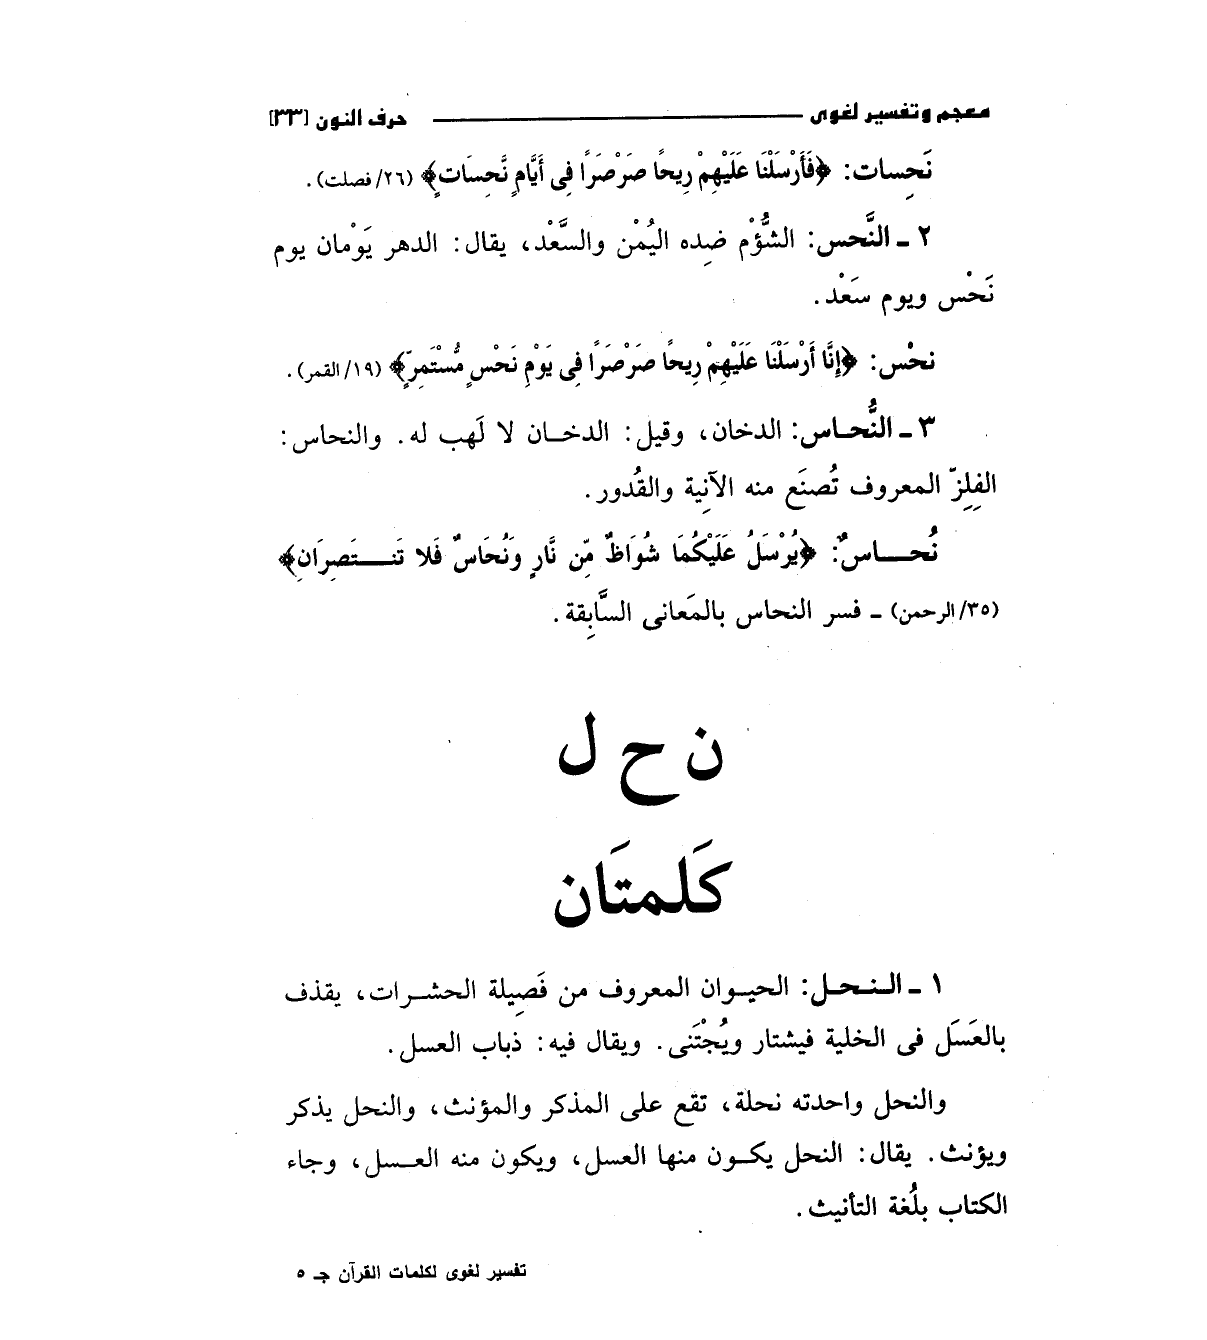 معجم وتفسير لغوى ــــــــ حرف النون [٣٣]
نَحِسات: ﴿فَأَرْسَلْنَا عَلَيْهِمْ رِيحًا صَرْصَرًا فِى أَيَّامٍ نَّحِسَاتٍ﴾ (٢٦/ فصلت).
٢ ـ النَّحس: الشُّؤْم ضِده اليُمْن والسَّعْد، يقال: الدهر يَوْمان يوم
نَحْس ويوم سَعْد.
نحْس: ﴿إِنَّا أَرْسَلْنَا عَلَيْهِمْ رِيحًا صَرْصَرًا فِى يَوْمِ نَحْسٍ مُّسْتَمِرٍّ﴾ (١٩/ القمر).
٣ ـ النُّحـاس: الدخان، وقيل: الدخــان لا لَهب له. والنحاس:
الفِلِزّ المعروف تُصنَع منه الآنِية والقُدور.
نُحــــاسٌ: ﴿يُرْسَلُ عَلَيْكُمَا شُوَاظٌ مِّن نَّارٍ وَنُحَاسٌ فَلا تَنــــتَصِرَانِ﴾
(٣٥/ الرحمن) ـ فسر النحاس بالمَعانى السَّابِقة.
ن ح ل
كَلمتَان
١ ـ النـحـل: الحيـوان المعروف من فَصِيلة الحشـرات، يقذف
بالعَسَل فى الخلية فيشتار ويُجْتَنى. ويقال فيه: ذباب العسل.
والنحل واحدته نحلة، تقع على المذكر والمؤنث، والنحل يذكر
ويؤنث. يقال: النحل يكــون منها العسل، ويكون منه العــسل، وجاء
الكتاب بلُغة التأنيث.
تفسير لغوى لكلمات القرآن جـ ٥